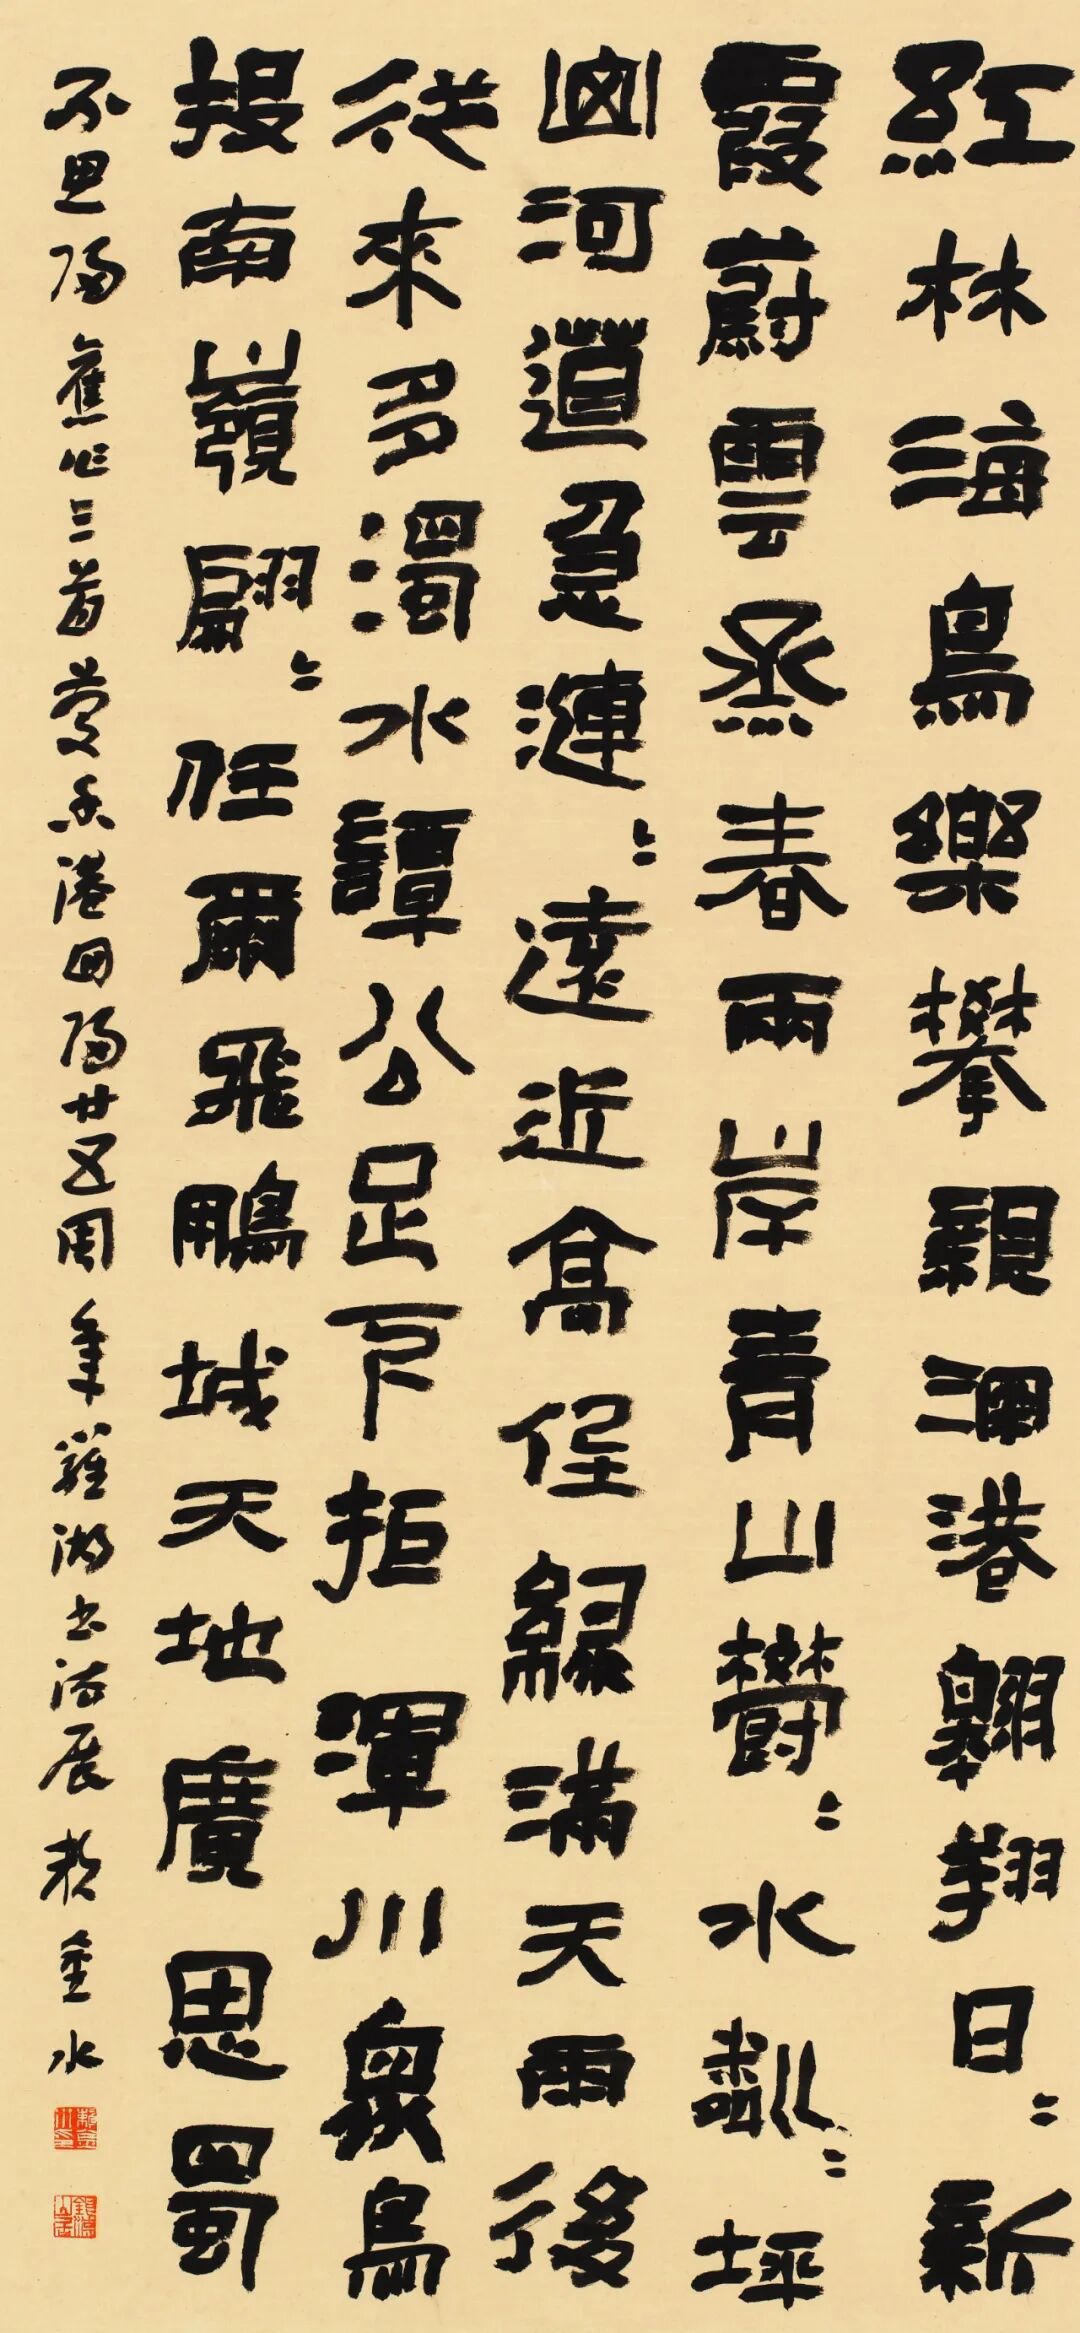 紅林海鳥樂攀親瀾港翱翔日〻新
霞蔚雲蒸春兩岸青山欝〻水粼〻坪
河道急漣〻遠近高低綠滿天雨後
從來多濁水譚公足下拒渾川眾鳥
投南嶺翩〻任爾飛鵬城天地廣思蜀
不思歸舊作三首慶香港回歸廿五周年羅湖書法展賴金水